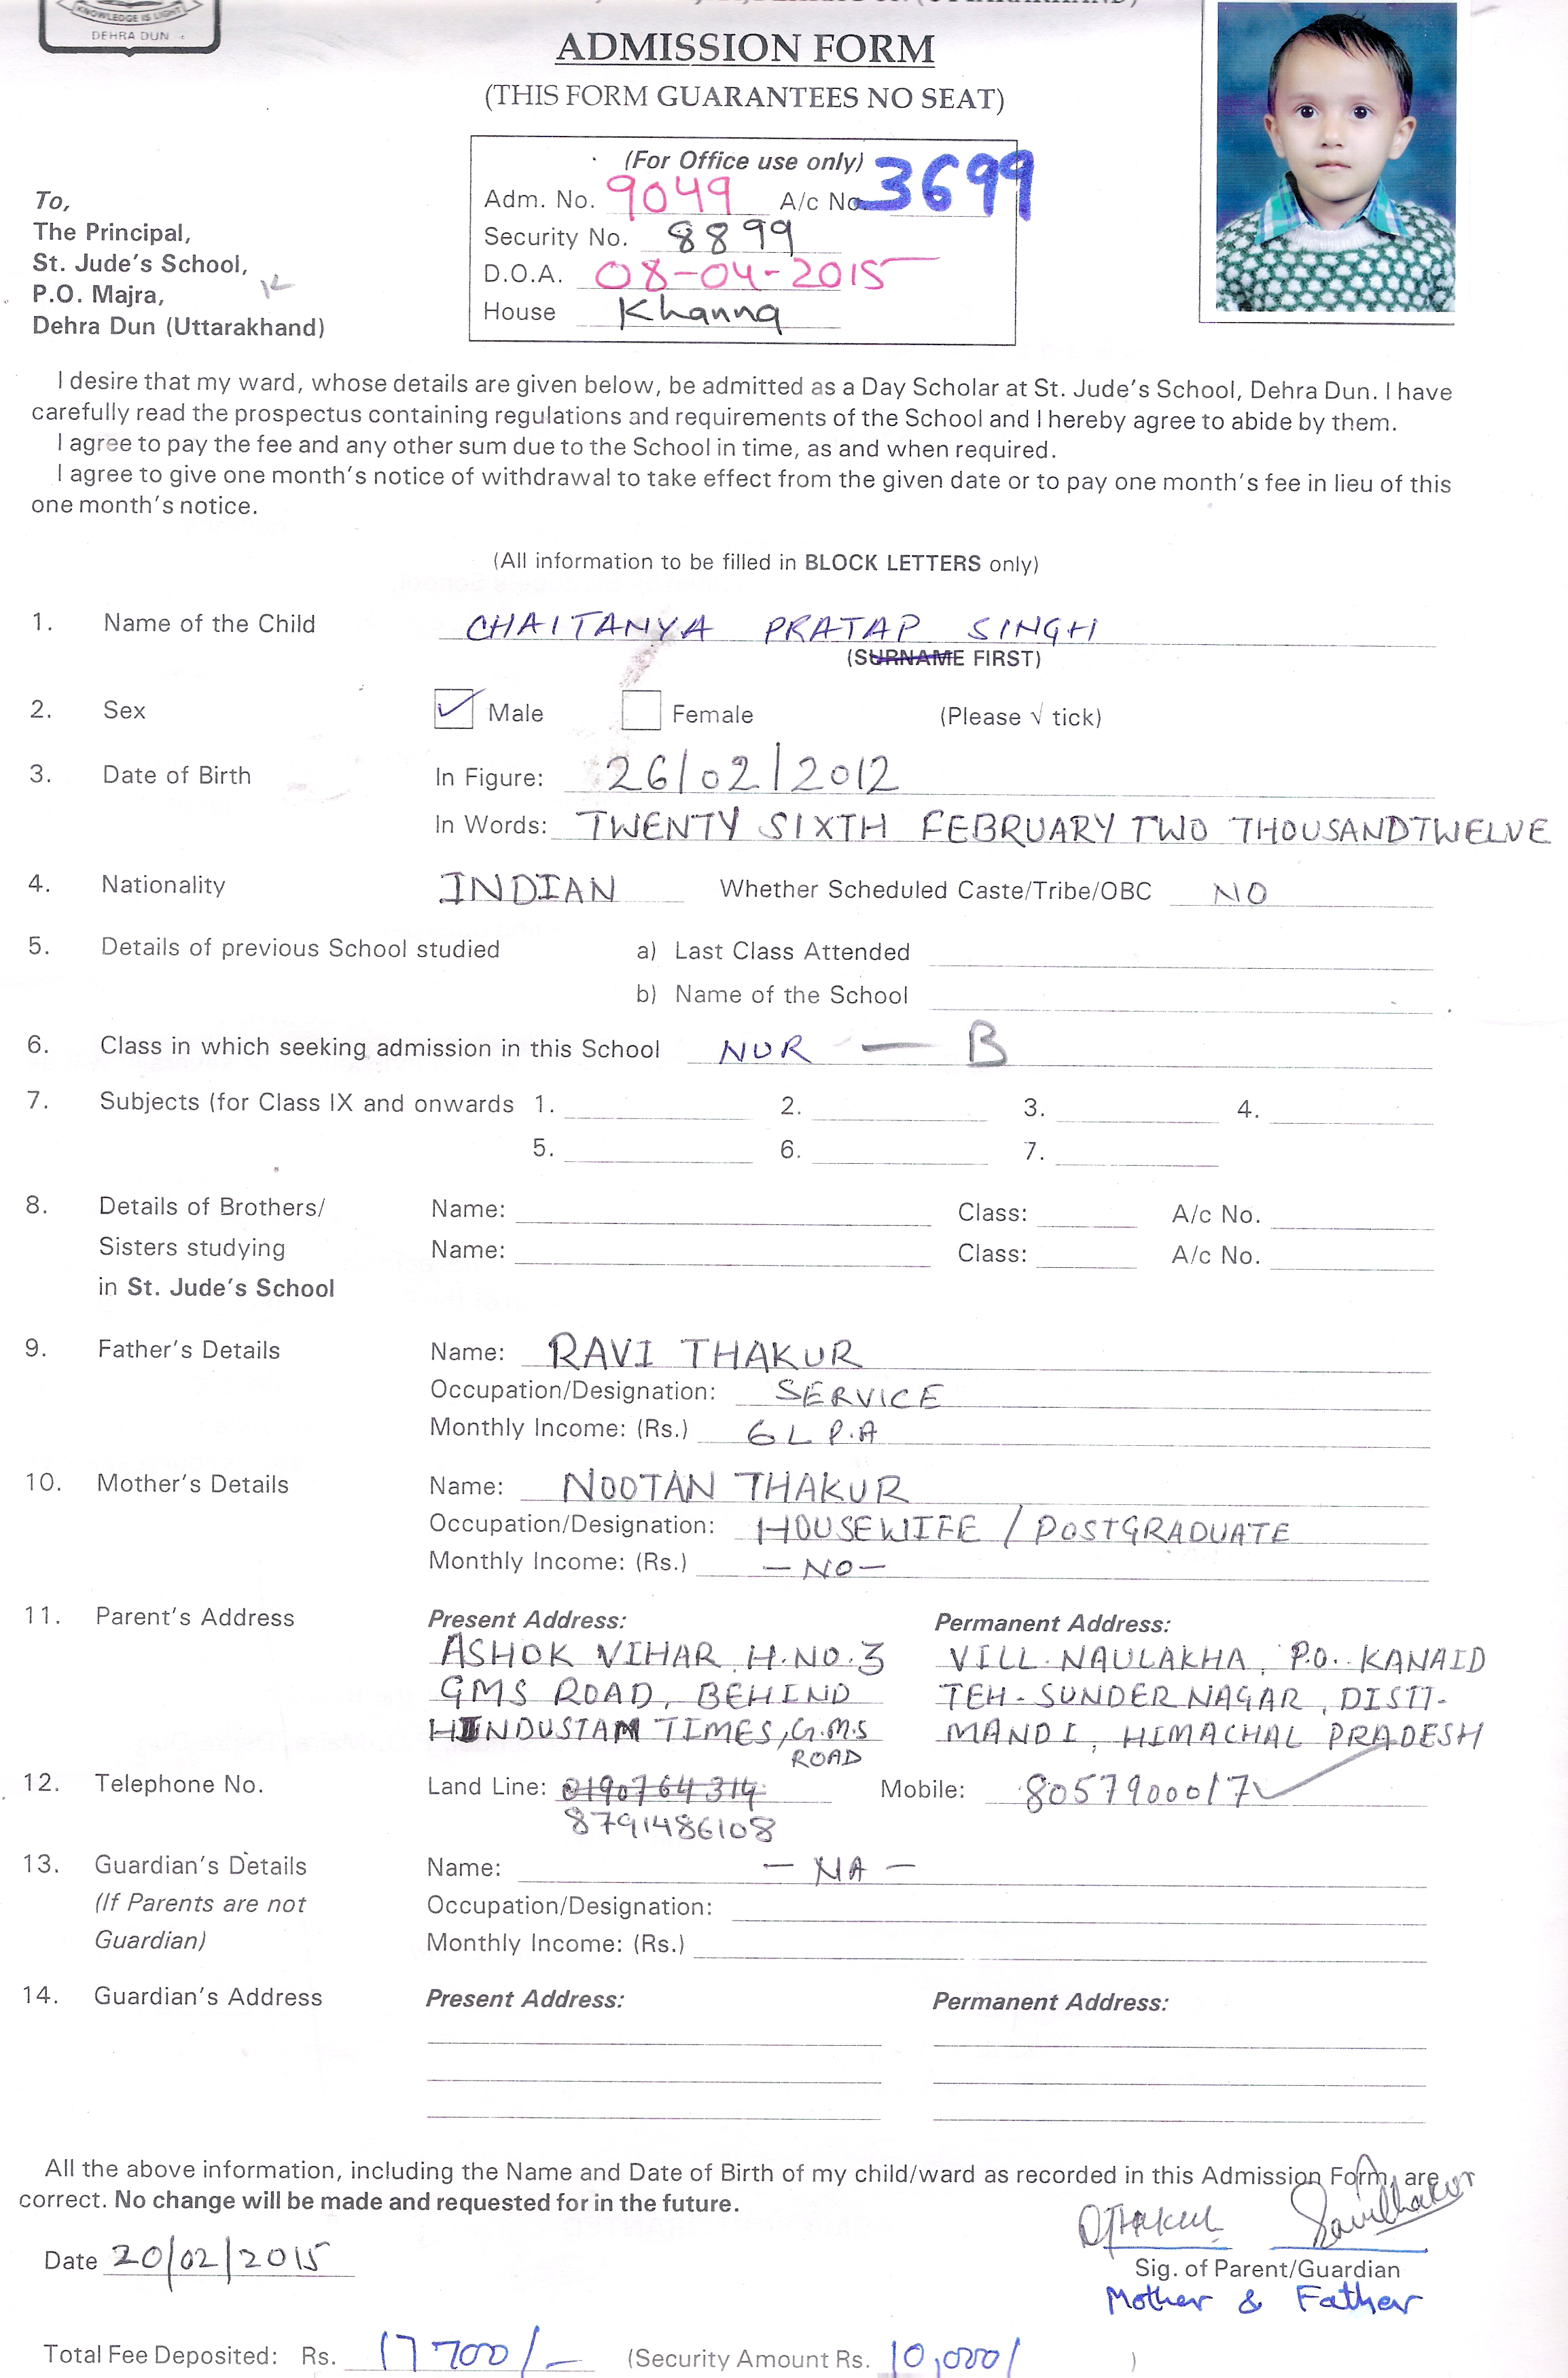 KNOWLEDGE IS LIGHT
DEHRA DUN
ADMISSION FORM
(THIS FORM GUARANTEES NO SEAT)
(For Office use only)
Adm. No. 9049 A/c No. 3699
Security No. 8899
D.O.A. 08-04-2015
House Khanna
To,
The Principal,
St. Jude's School,
P.O. Majra,
Dehra Dun (Uttarakhand)
I desire that my ward, whose details are given below, be admitted as a Day Scholar at St. Jude's School, Dehra Dun. I have
carefully read the prospectus containing regulations and requirements of the School and I hereby agree to abide by them.
I agree to pay the fee and any other sum due to the School in time, as and when required.
I agree to give one month's notice of withdrawal to take effect from the given date or to pay one month's fee in lieu of this
one month's notice.
(All information to be filled in BLOCK LETTERS only)
1. Name of the Child CHAITANYA PRATAP SINGH
(SURNAME FIRST)
2. Sex Male Female (Please √ tick)
3. Date of Birth In Figure: 26/02/2012
In Words: TWENTY SIXTH FEBRUARY TWO THOUSANDTWELVE
4. Nationality INDIAN Whether Scheduled Caste/Tribe/OBC NO
5. Details of previous School studied a) Last Class Attended
b) Name of the School
6. Class in which seeking admission in this School NUR — B
7. Subjects (for Class IX and onwards 1. 2. 3. 4.
5. 6. 7.
8. Details of Brothers/ Name: Class: A/c No.
Sisters studying Name: Class: A/c No.
in St. Jude's School
9. Father's Details Name: RAVI THAKUR
Occupation/Designation: SERVICE
Monthly Income: (Rs.) 6 L P.A
10. Mother's Details Name: NOOTAN THAKUR
Occupation/Designation: HOUSEWIFE / POSTGRADUATE
Monthly Income: (Rs.) — NO —
11. Parent's Address Present Address: Permanent Address:
ASHOK VIHAR, H.NO.3 VILL. NAULAKHA, P.O. KANAID
GMS ROAD, BEHIND TEH- SUNDER NAGAR, DISTT-
HINDUSTAN TIMES, G.M.S MANDI, HIMACHAL PRADESH
ROAD
12. Telephone No. Land Line: 0190764314 Mobile: 8057900017
8791486108
13. Guardian's Details Name: — NA —
(If Parents are not Occupation/Designation:
Guardian) Monthly Income: (Rs.)
14. Guardian's Address Present Address: Permanent Address:
All the above information, including the Name and Date of Birth of my child/ward as recorded in this Admission Form, are
correct. No change will be made and requested for in the future.
Date 20/02/2015
Sig. of Parent/Guardian
Mother & Father
Total Fee Deposited: Rs. 17700/- (Security Amount Rs. 10,000/ )